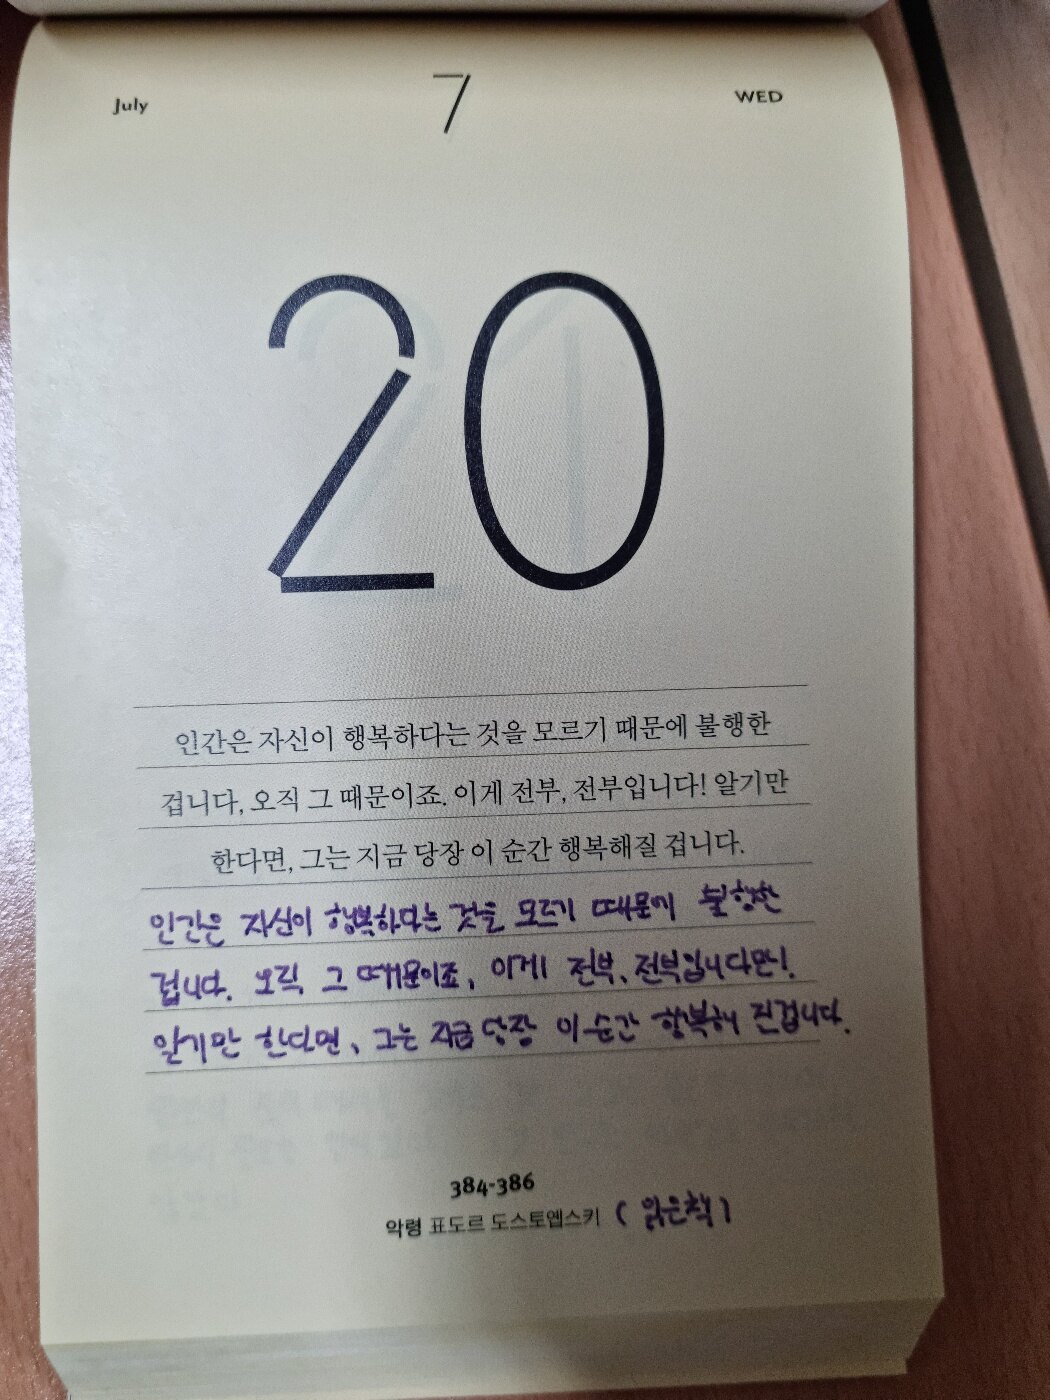 July 7 WED
20
인간은 자신이 행복하다는 것을 모르기 때문에 불행한
겁니다, 오직 그 때문이죠. 이게 전부, 전부입니다! 알기만
한다면, 그는 지금 당장 이 순간 행복해질 겁니다.
인간은 자신이 행복하다는 것을 모르기 때문에 불행한
겁니다. 오직 그 때문이죠, 이게 전부, 전부입니다만!
알기만 한다면, 그는 지금 당장 이 순간 행복해 진겁니다.
384-386
악령 표도르 도스토옙스키 ( 읽은책 )